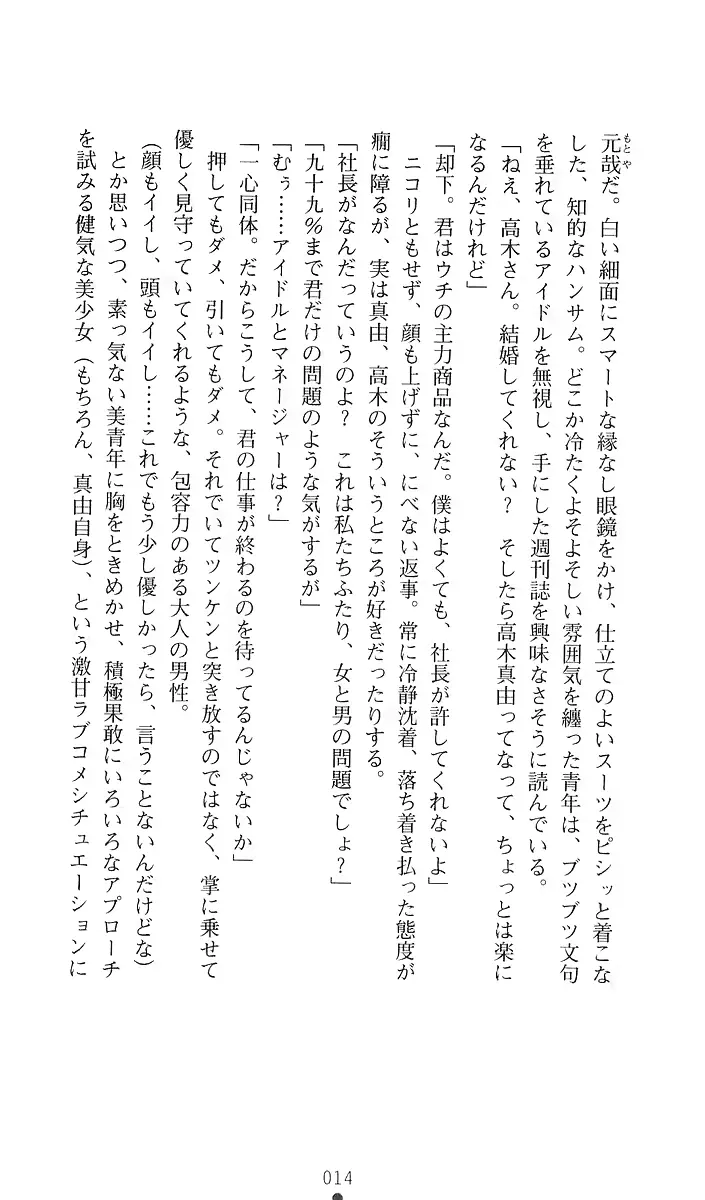 元哉だ。白い細面にスマートな縁なし眼鏡をかけ、仕立てのよいスーツをピシッと着こな
もとや
した、知的なハンサム。どこか冷たくよそよそしい雰囲気を纏った青年は、ブツブツ文句
を垂れているアイドルを無視し、手にした週刊誌を興味なさそうに読んでいる。
「ねえ、高木さん。結婚してくれない？　そしたら高木真由ってなって、ちょっとは楽に
なるんだけれど」
「却下。君はウチの主力商品なんだ。僕はよくても、社長が許してくれないよ」
ニコリともせず、顔も上げずに、にべない返事。常に冷静沈着、落ち着き払った態度が
癇に障るが、実は真由、高木のそういうところが好きだったりする。
「社長がなんだっていうのよ？　これは私たちふたり、女と男の問題でしょ？」
「九十九％まで君だけの問題のような気がするが」
「むぅ……アイドルとマネージャーは？」
「一心同体。だからこうして、君の仕事が終わるのを待ってるんじゃないか」
押してもダメ、引いてもダメ。それでいてツンケンと突き放すのではなく、掌に乗せて
優しく見守っていてくれるような、包容力のある大人の男性。
（顔もイイし、頭もイイし……これでもう少し優しかったら、言うことないんだけどな）
とか思いつつ、素っ気ない美青年に胸をときめかせ、積極果敢にいろいろなアプローチ
を試みる健気な美少女（もちろん、真由自身）、という激甘ラブコメシチュエーションに
014